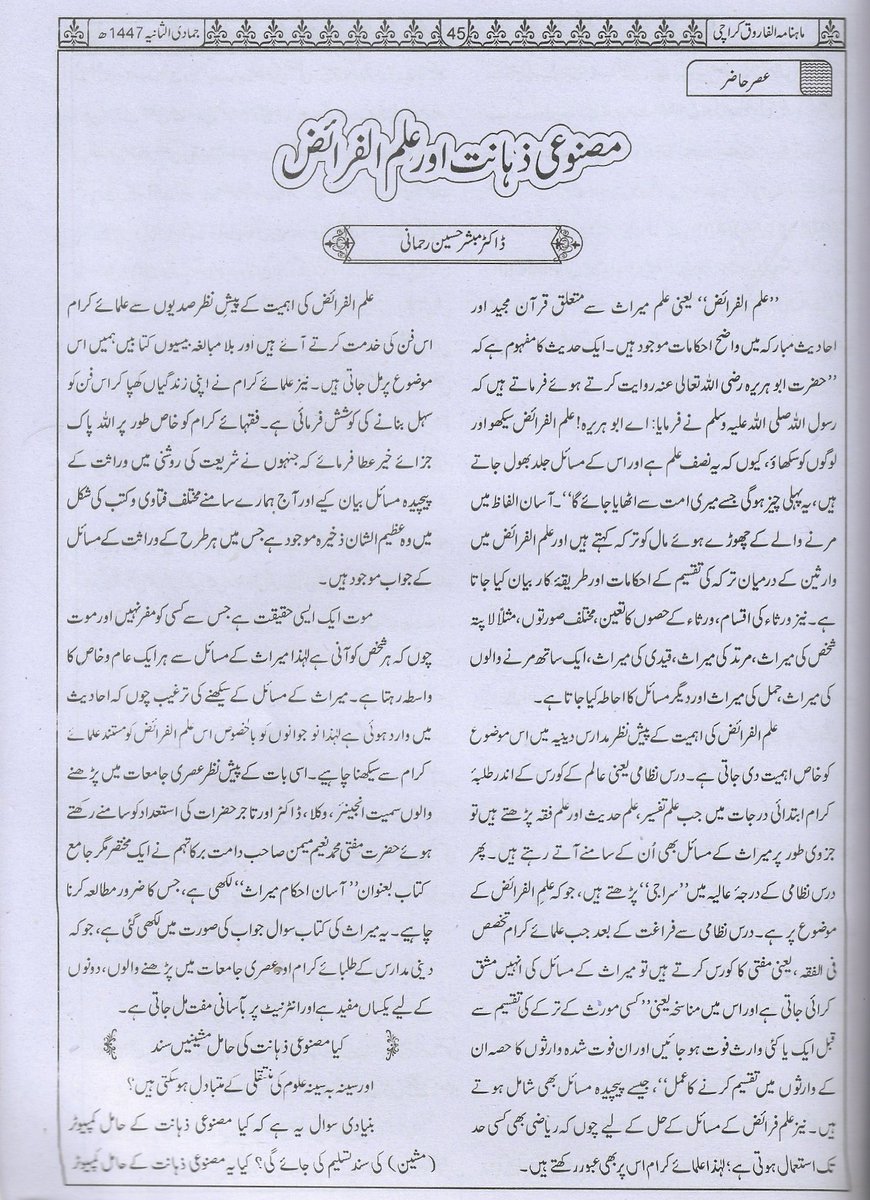 ماہنامہ الفاروق کراچی
45
جمادی الثانیہ 1447ھ
عصر حاضر
مصنوعی ذہانت اور علم الفرائض
ڈاکٹر مبشر حسین رحمانی
”علم الفرائض“ یعنی علم میراث سے متعلق قرآن مجید اور
احادیث مبارکہ میں واضح احکامات موجود ہیں۔ ایک حدیث کا مفہوم ہے کہ
”حضرت ابو ہریرہ رضی اللہ تعالی عنہ روایت کرتے ہوئے فرماتے ہیں کہ
رسول اللہ صلی اللہ علیہ وسلم نے فرمایا: اے ابو ہریرہ! علم الفرائض سیکھو اور
لوگوں کو سکھاؤ، کیوں کہ یہ نصف علم ہے اور اس کے مسائل جلد بھول جاتے
ہیں، یہ پہلی چیز ہوگی جسے میری امت سے اٹھایا جائے گا“۔ آسان الفاظ میں
مرنے والے کے چھوڑے ہوئے مال کو ترکہ کہتے ہیں اور علم الفرائض میں
وارثین کے درمیان ترکہ کی تقسیم کے احکامات اور طریقۂ کار بیان کیا جاتا
ہے۔ نیز ورثاء کی اقسام، ورثاء کے حصوں کا تعین، مختلف صورتوں، مثلاً لاپتہ
شخص کی میراث، مرتد کی میراث، قیدی کی میراث، ایک ساتھ مرنے والوں
کی میراث، حمل کی میراث اور دیگر مسائل کا احاطہ کیا جاتا ہے۔
علم الفرائض کی اہمیت کے پیش نظر مدارس دینیہ میں اس موضوع
کو خاص اہمیت دی جاتی ہے۔ درس نظامی یعنی عالم کے کورس کے اندر طلبۂ
کرام ابتدائی درجات میں جب علم تفسیر، علم حدیث اور علم فقہ پڑھتے ہیں تو
جزوی طور پر میراث کے مسائل بھی اُن کے سامنے آتے رہتے ہیں۔ پھر
درس نظامی کے درجۂ عالیہ میں ”سراجی“ پڑھتے ہیں، جو کہ علمِ الفرائض کے
موضوع پر ہے۔ درس نظامی سے فراغت کے بعد جب علمائے کرام تخصص
فی الفقہ، یعنی مفتی کا کورس کرتے ہیں تو میراث کے مسائل کی انہیں مشق
کرائی جاتی ہے اور اس میں مناسخہ یعنی ”کسی مورث کے ترکے کی تقسیم سے
قبل ایک یا کئی وارث فوت ہو جائیں اور ان فوت شدہ وارثوں کا حصہ ان
کے وارثوں میں تقسیم کرنے کا عمل“، جیسے پیچیدہ مسائل بھی شامل ہوتے
ہیں۔ نیز علم فرائض کے مسائل کے حل کے لیے چوں کہ ریاضی بھی کسی حد
تک استعمال ہوتی ہے؛ لہٰذا علمائے کرام اس پر بھی عبور رکھتے ہیں۔
علم الفرائض کی اہمیت کے پیشِ نظر صدیوں سے علمائے کرام
اس فن کی خدمت کرتے آئے ہیں اور بلا مبالغہ بیسیوں کتابیں ہمیں اس
موضوع پر مل جاتی ہیں۔ نیز علمائے کرام نے اپنی زندگیاں کھپا کر اس فن کو
سہل بنانے کی کوشش فرمائی ہے۔ فقہائے کرام کو خاص طور پر اللہ پاک
جزائے خیر عطا فرمائے کہ جنہوں نے شریعت کی روشنی میں وراثت کے
پیچیدہ مسائل بیان کیے اور آج ہمارے سامنے مختلف فتاوی و کتب کی شکل
میں وہ عظیم الشان ذخیرہ موجود ہے جس میں ہر طرح کے وراثت کے مسائل
کے جواب موجود ہیں۔
موت ایک ایسی حقیقت ہے جس سے کسی کو مفر نہیں اور موت
چوں کہ ہر شخص کو آنی ہے لہٰذا میراث کے مسائل سے ہر ایک عام و خاص کا
واسطہ رہتا ہے۔ میراث کے مسائل کے سیکھنے کی ترغیب چوں کہ احادیث
میں وارد ہوئی ہے لہٰذا نوجوانوں کو بالخصوص اس علم الفرائض کو مستند علمائے
کرام سے سیکھنا چاہیے۔ اسی بات کے پیش نظر عصری جامعات میں پڑھنے
والوں سمیت انجینئر، وکلا، ڈاکٹر اور تاجر حضرات کی استعداد کو سامنے رکھتے
ہوئے حضرت مفتی محمد نعیم میمن صاحب دامت برکاتہم نے ایک مختصر مگر جامع
کتاب بعنوان ”آسان احکام میراث“ لکھی ہے، جس کا ضرور مطالعہ کرنا
چاہیے۔ یہ میراث کی کتاب سوال جواب کی صورت میں لکھی گئی ہے، جو کہ
دینی مدارس کے طلبائے کرام اور عصری جامعات میں پڑھنے والوں، دونوں
کے لیے یکساں مفید ہے اور انٹرنیٹ پر بآسانی مفت مل جاتی ہے۔
کیا مصنوعی ذہانت کی حامل مشینیں سند
اور سینہ بہ سینہ علوم کی منتقلی کے متبادل ہو سکتی ہیں؟
بنیادی سوال یہ ہے کہ کیا مصنوعی ذہانت کے حامل کمپیوٹر
(مشین) کی سند تسلیم کی جائے گی؟ کیا یہ مصنوعی ذہانت کے حامل کمپیوٹر